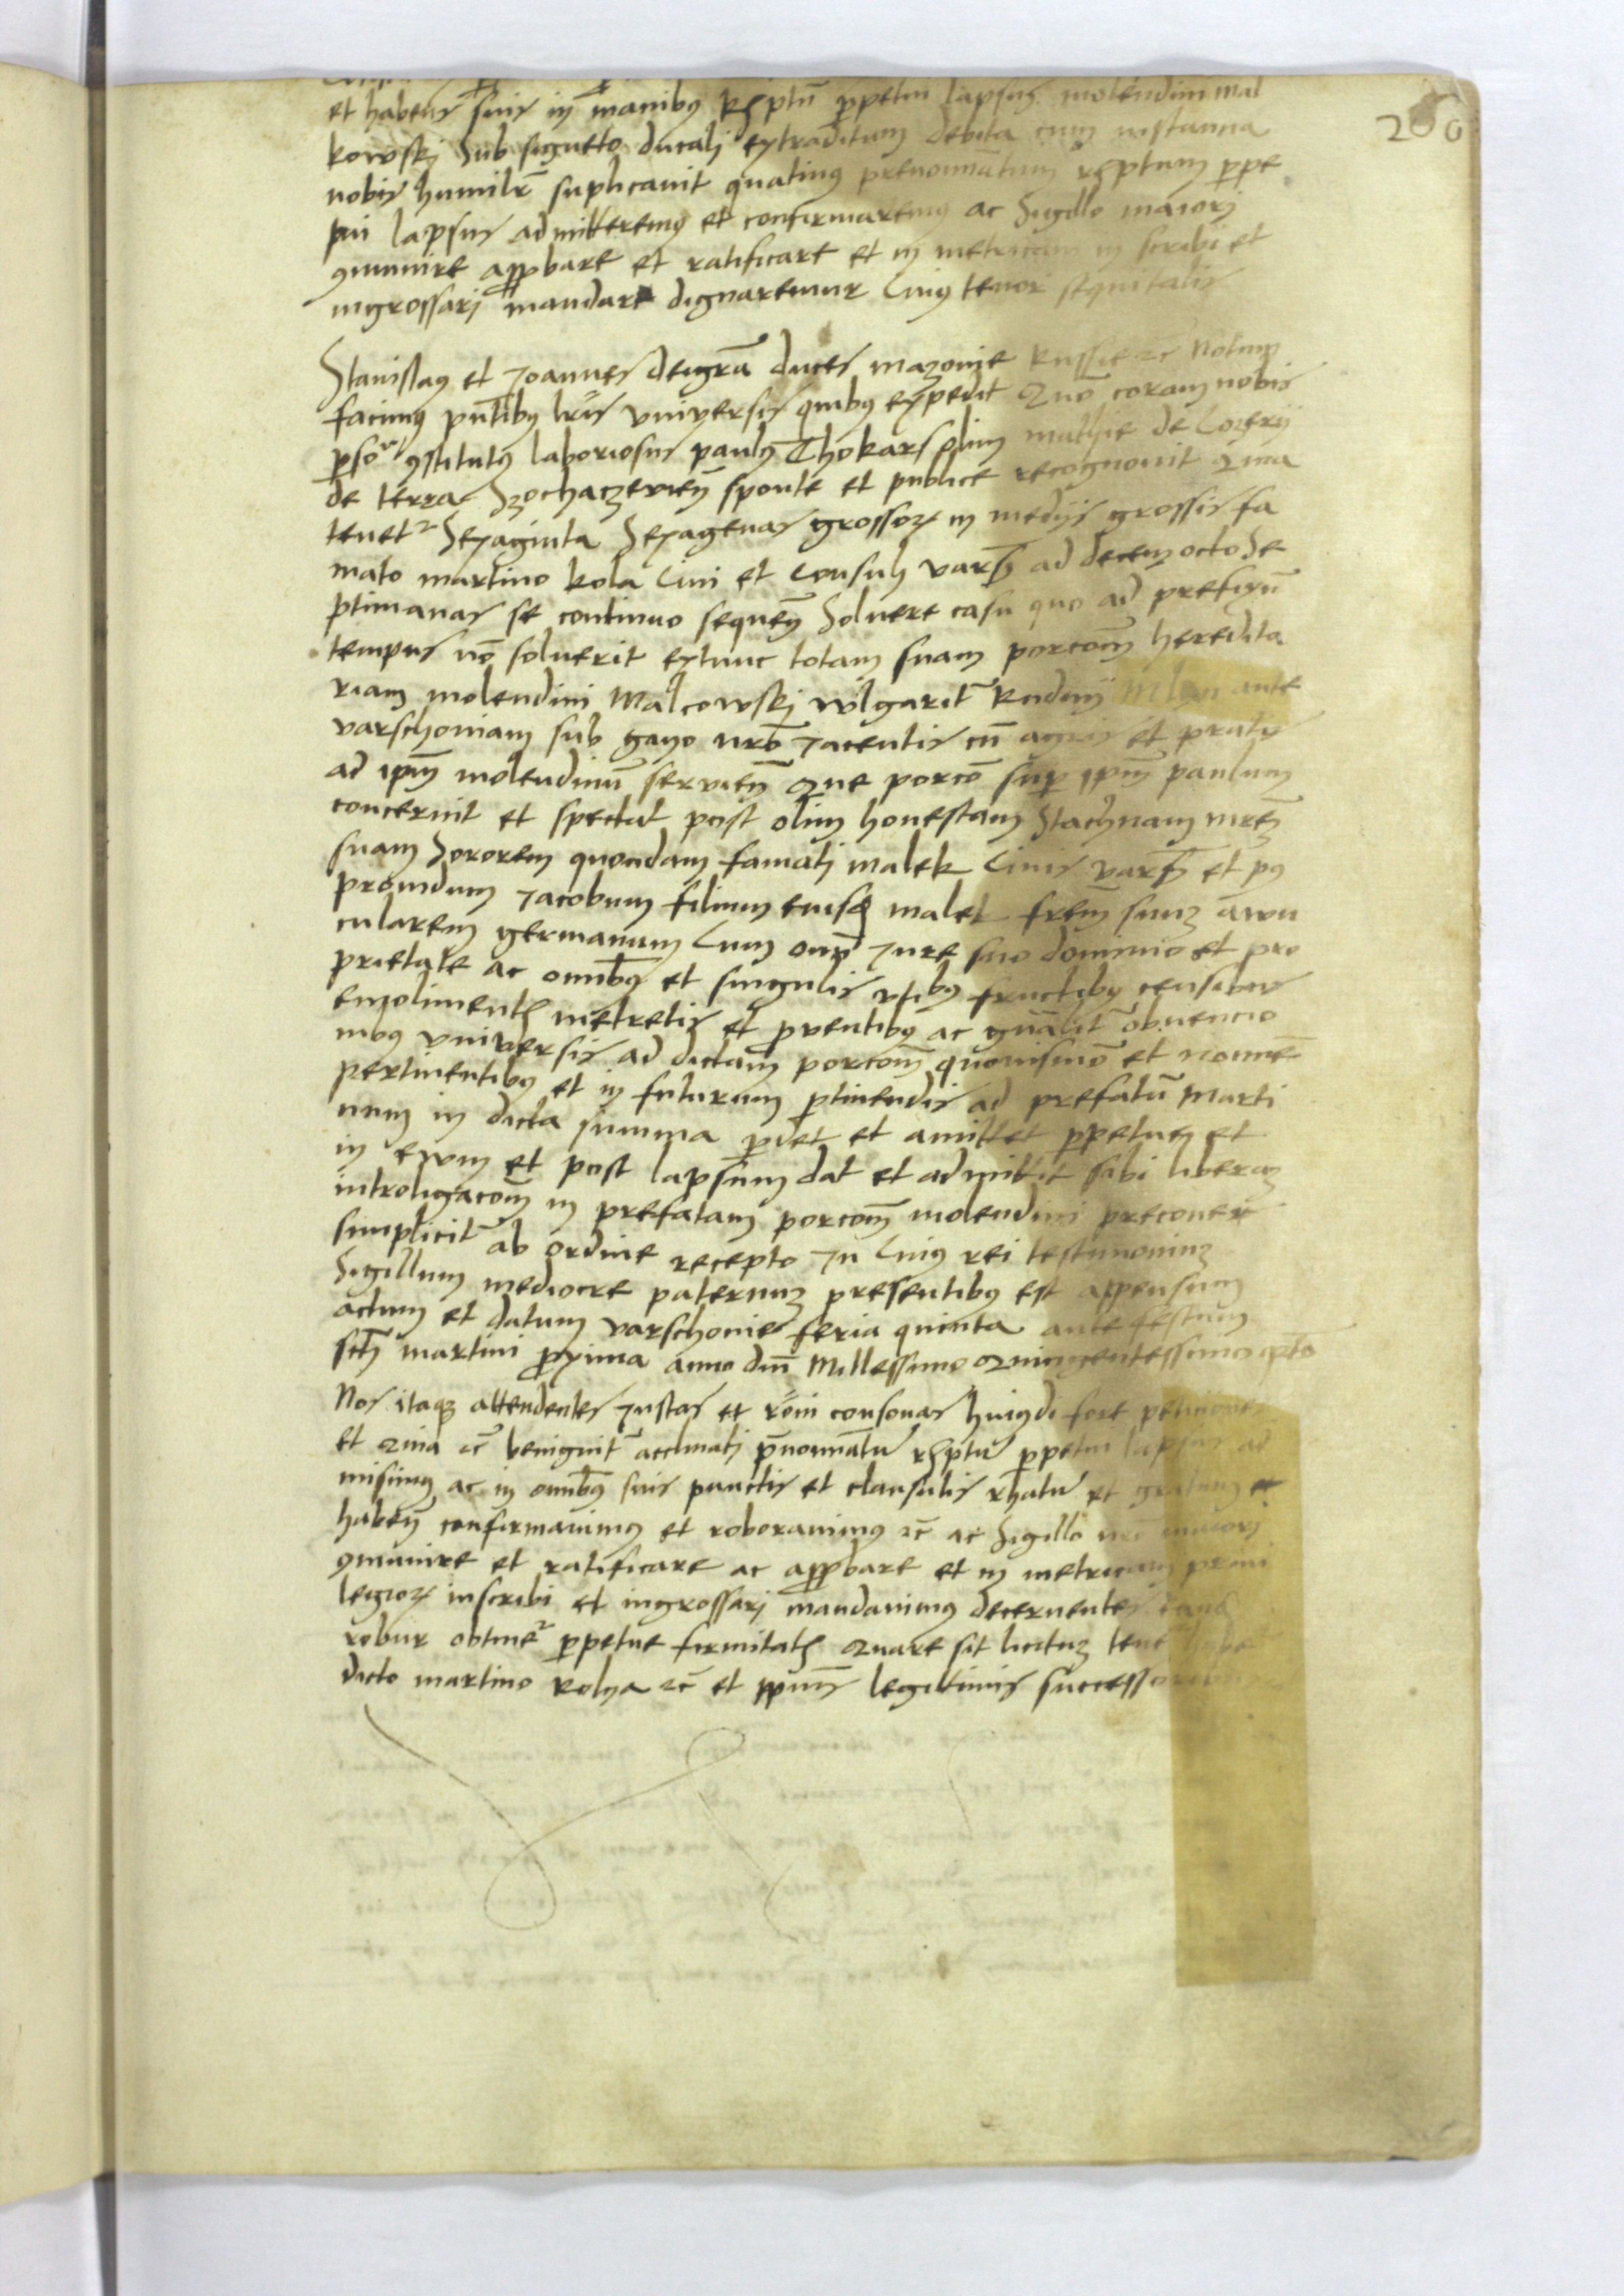 266
et habens suis in manibus Rescptum ppetui lapsus molendini Mal
kowskj Sub signetto ducalj extraditum debita cum instancia
nobis humilr suplicavit quatinus prenominatum rescptum ppe
tui lapsus admitteremus et confirmaremus ac Sigillo maiorj
9munire approbare et ratificare et in metricam in scribi et
ingrossarj mandare dignaremur Cuius tenor sequitur talis
Stanislaus et Joannes dei gra duces mazovie Russie zc Notum
facimus pntibus lris universis quibus expedit Quo coram nobis
psor 9stitutus laboriosus paulus Thokars olim mathie de
de terra Szochaczevien sponte et publice recognovit Quia
tenetr Sexaginta Sexagenas grossor in medijs grossis fa
mato martino kola Civi et Consulj vars ad decem octo Se
ptimanas se continuo sequen Solvere casu quo ad prefixu
tempus no solverit extunc totam suam porcom heredita
riam molendini Malcowskj wlgarit Rudnij Mlyn ante
varschoviam sub gayo nro Jacentis cu agris et pratis
ad ipm molendinu servien Que porco sup ipm paulum
concernit et spectat post olim honestam Stachnam mrem
suam Sororem quondam famatj malek Civis vars et p9
providum Jacobum filium eiusd malek frem suuz awu
cularem germanum Cum omi Jure suo dominio et pro
prietate ac omibus et singulis utibus fructibus censibus
emolimentis metretis et proventibus ac gnalit obvencio
nibus universis ad dictam porcom quovismo et nomine
pertinentibus et in futurum ptinendis ad prefatu Marti
num in dicta summa pdet et amittet ppetue et
in evum et post lapsum dat et admittit sibi liberam
introligacom in prefatam porcom molendini
simplicit ab ordine recepto In Cuius rei testimoniuz
Sigillum mediocre paternuz presentibus est appensum
actum et datum varschovie feria quinta ante festum
sctj martini proxima anno dni Millessimo Quingentessimo
Nos itaq attendentes Justas et roni consonas huiusdi fore peticiones
et Quia zc benignit acclinatj pnominatu rescptu ppetui lapsus ad
misimus ac in omibus suis punctis et clausulis rhatu et gratum
haben confirmavimus et roboravimus zc ac Sigillo nro maiorj
9munire et ratificare ac approbare et in metricam privi
legior inscribi et ingrossarj mandavimus decernentes
robur obtiner ppetue firmitatis Quare sit licituz tener
dicto martino kolya zc et ipius legittimis successoribus